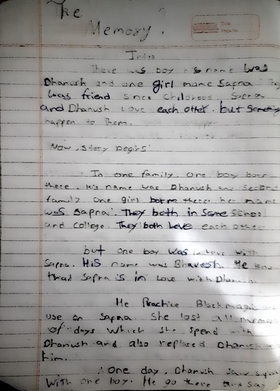 The
Memory.
Intro
There was boy his name was
Dhanush and one girl name Sapna. They
was friend since childhood. Sapna
and Dhanush Love each other. but Something
happen to them.
Now, Story Begins
In one family. One boy born
there. His name was Dhanush and Second
family One girl borne there. her name
was Sapna. They both in Same School
and College. They Both Love each other.
but one boy was
Sapna. His name was Bhavesh. He
that Sapna is in Love with Dhanush
He Practice Black magic and
use on Sapna. She lost all
of days which she spend with
Dhanush and also replaced Dhanush
him.
One day, Dhanush Saw Sapna
With one boy. He go there